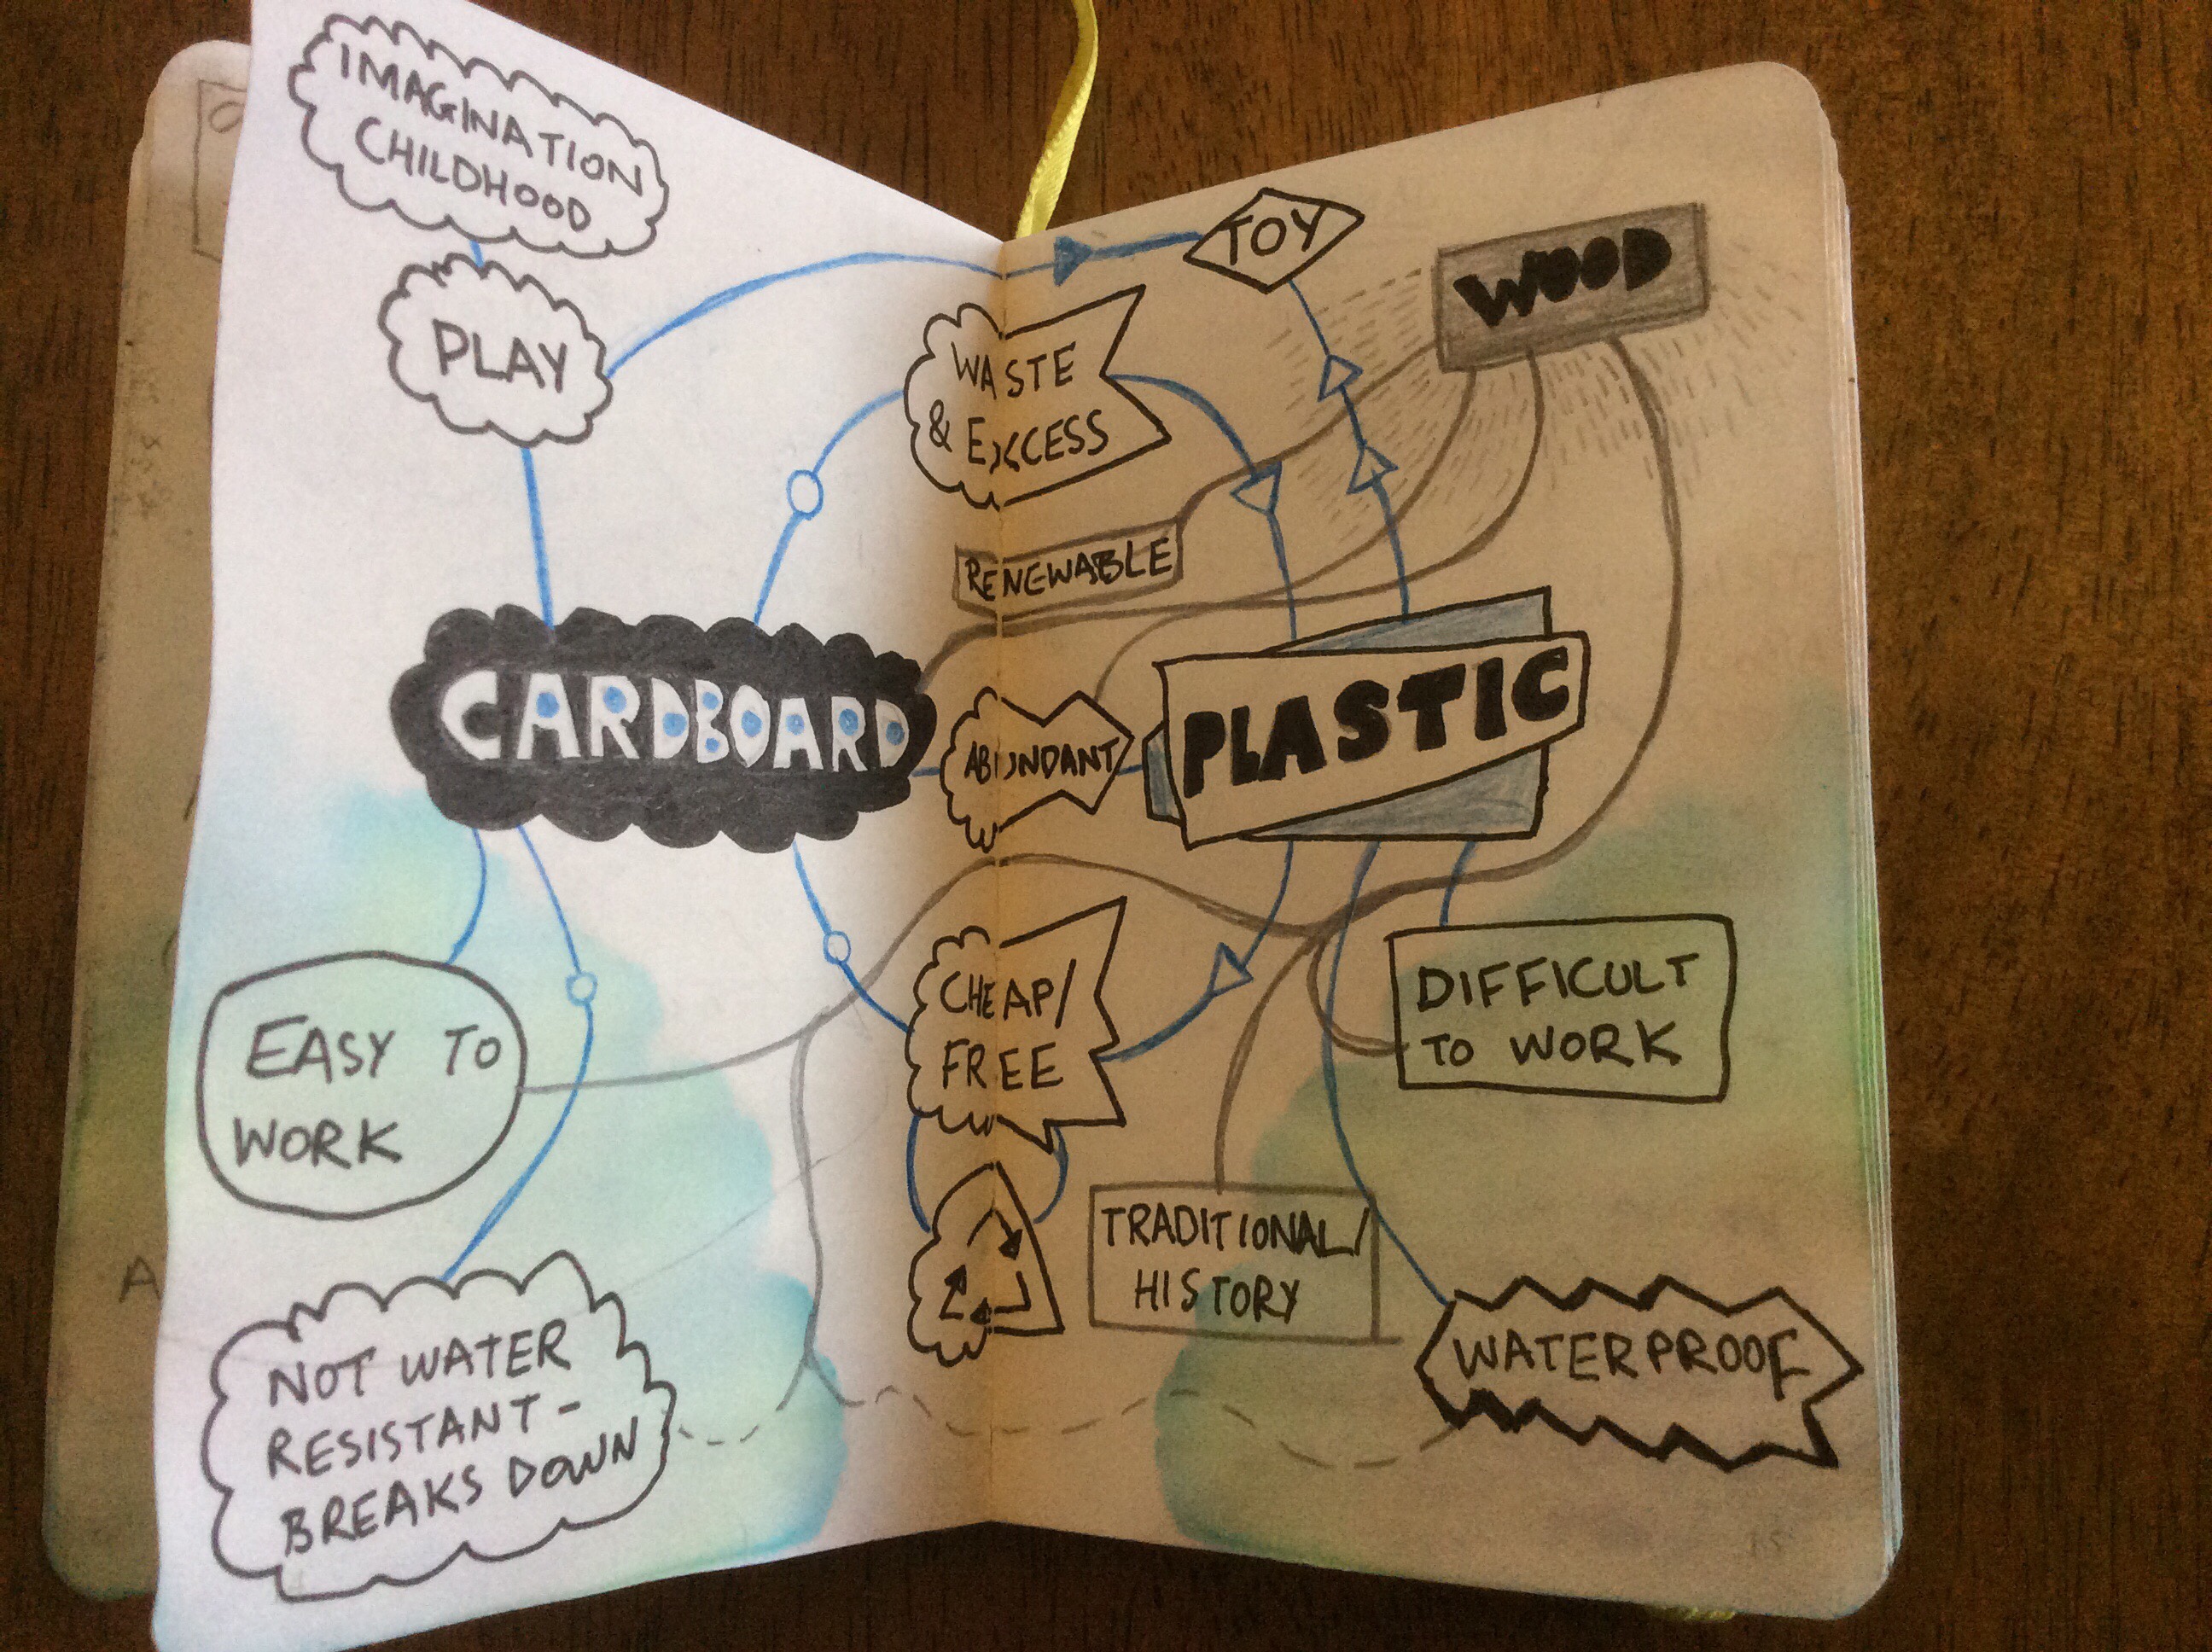 IMAGINATION
CHILDHOOD
PLAY
TOY
WOOD
WASTE
& EXCESS
RENEWABLE
CARDBOARD
ABUNDANT
PLASTIC
EASY TO
WORK
CHEAP/
FREE
DIFFICULT
TO WORK
TRADITIONAL/
HISTORY
NOT WATER
RESISTANT-
BREAKS DOWN
WATERPROOF
A